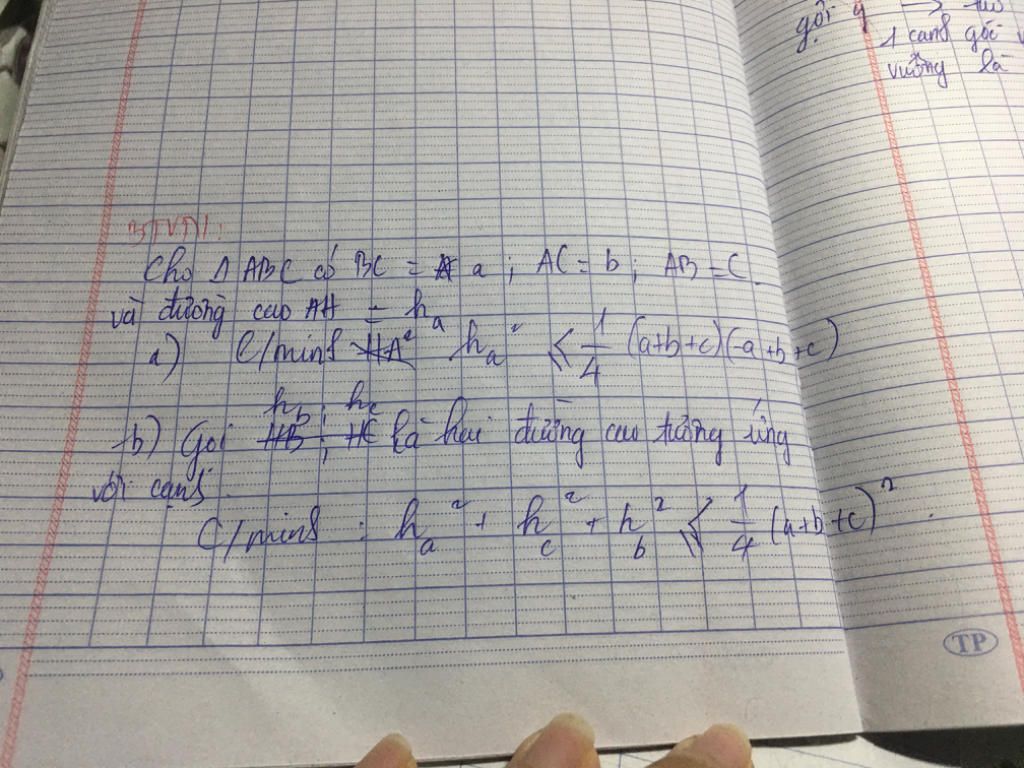 gợi ý →
1 cạnh góc v
vuông là
BTVN1:
Cho Δ ABC có BC = a ; AC = b ; AB = C
và đường cao AH = hₐ
a) C/minh hₐ² ≤ 1/4 (a+b+c)(-a+b+c)
b) Gọi h_b ; h_c là hai đường cao tương ứng
với cạnh
C/minh : hₐ² + h_c² + h_b² ≤ 1/4 (a+b+c)² .
TP